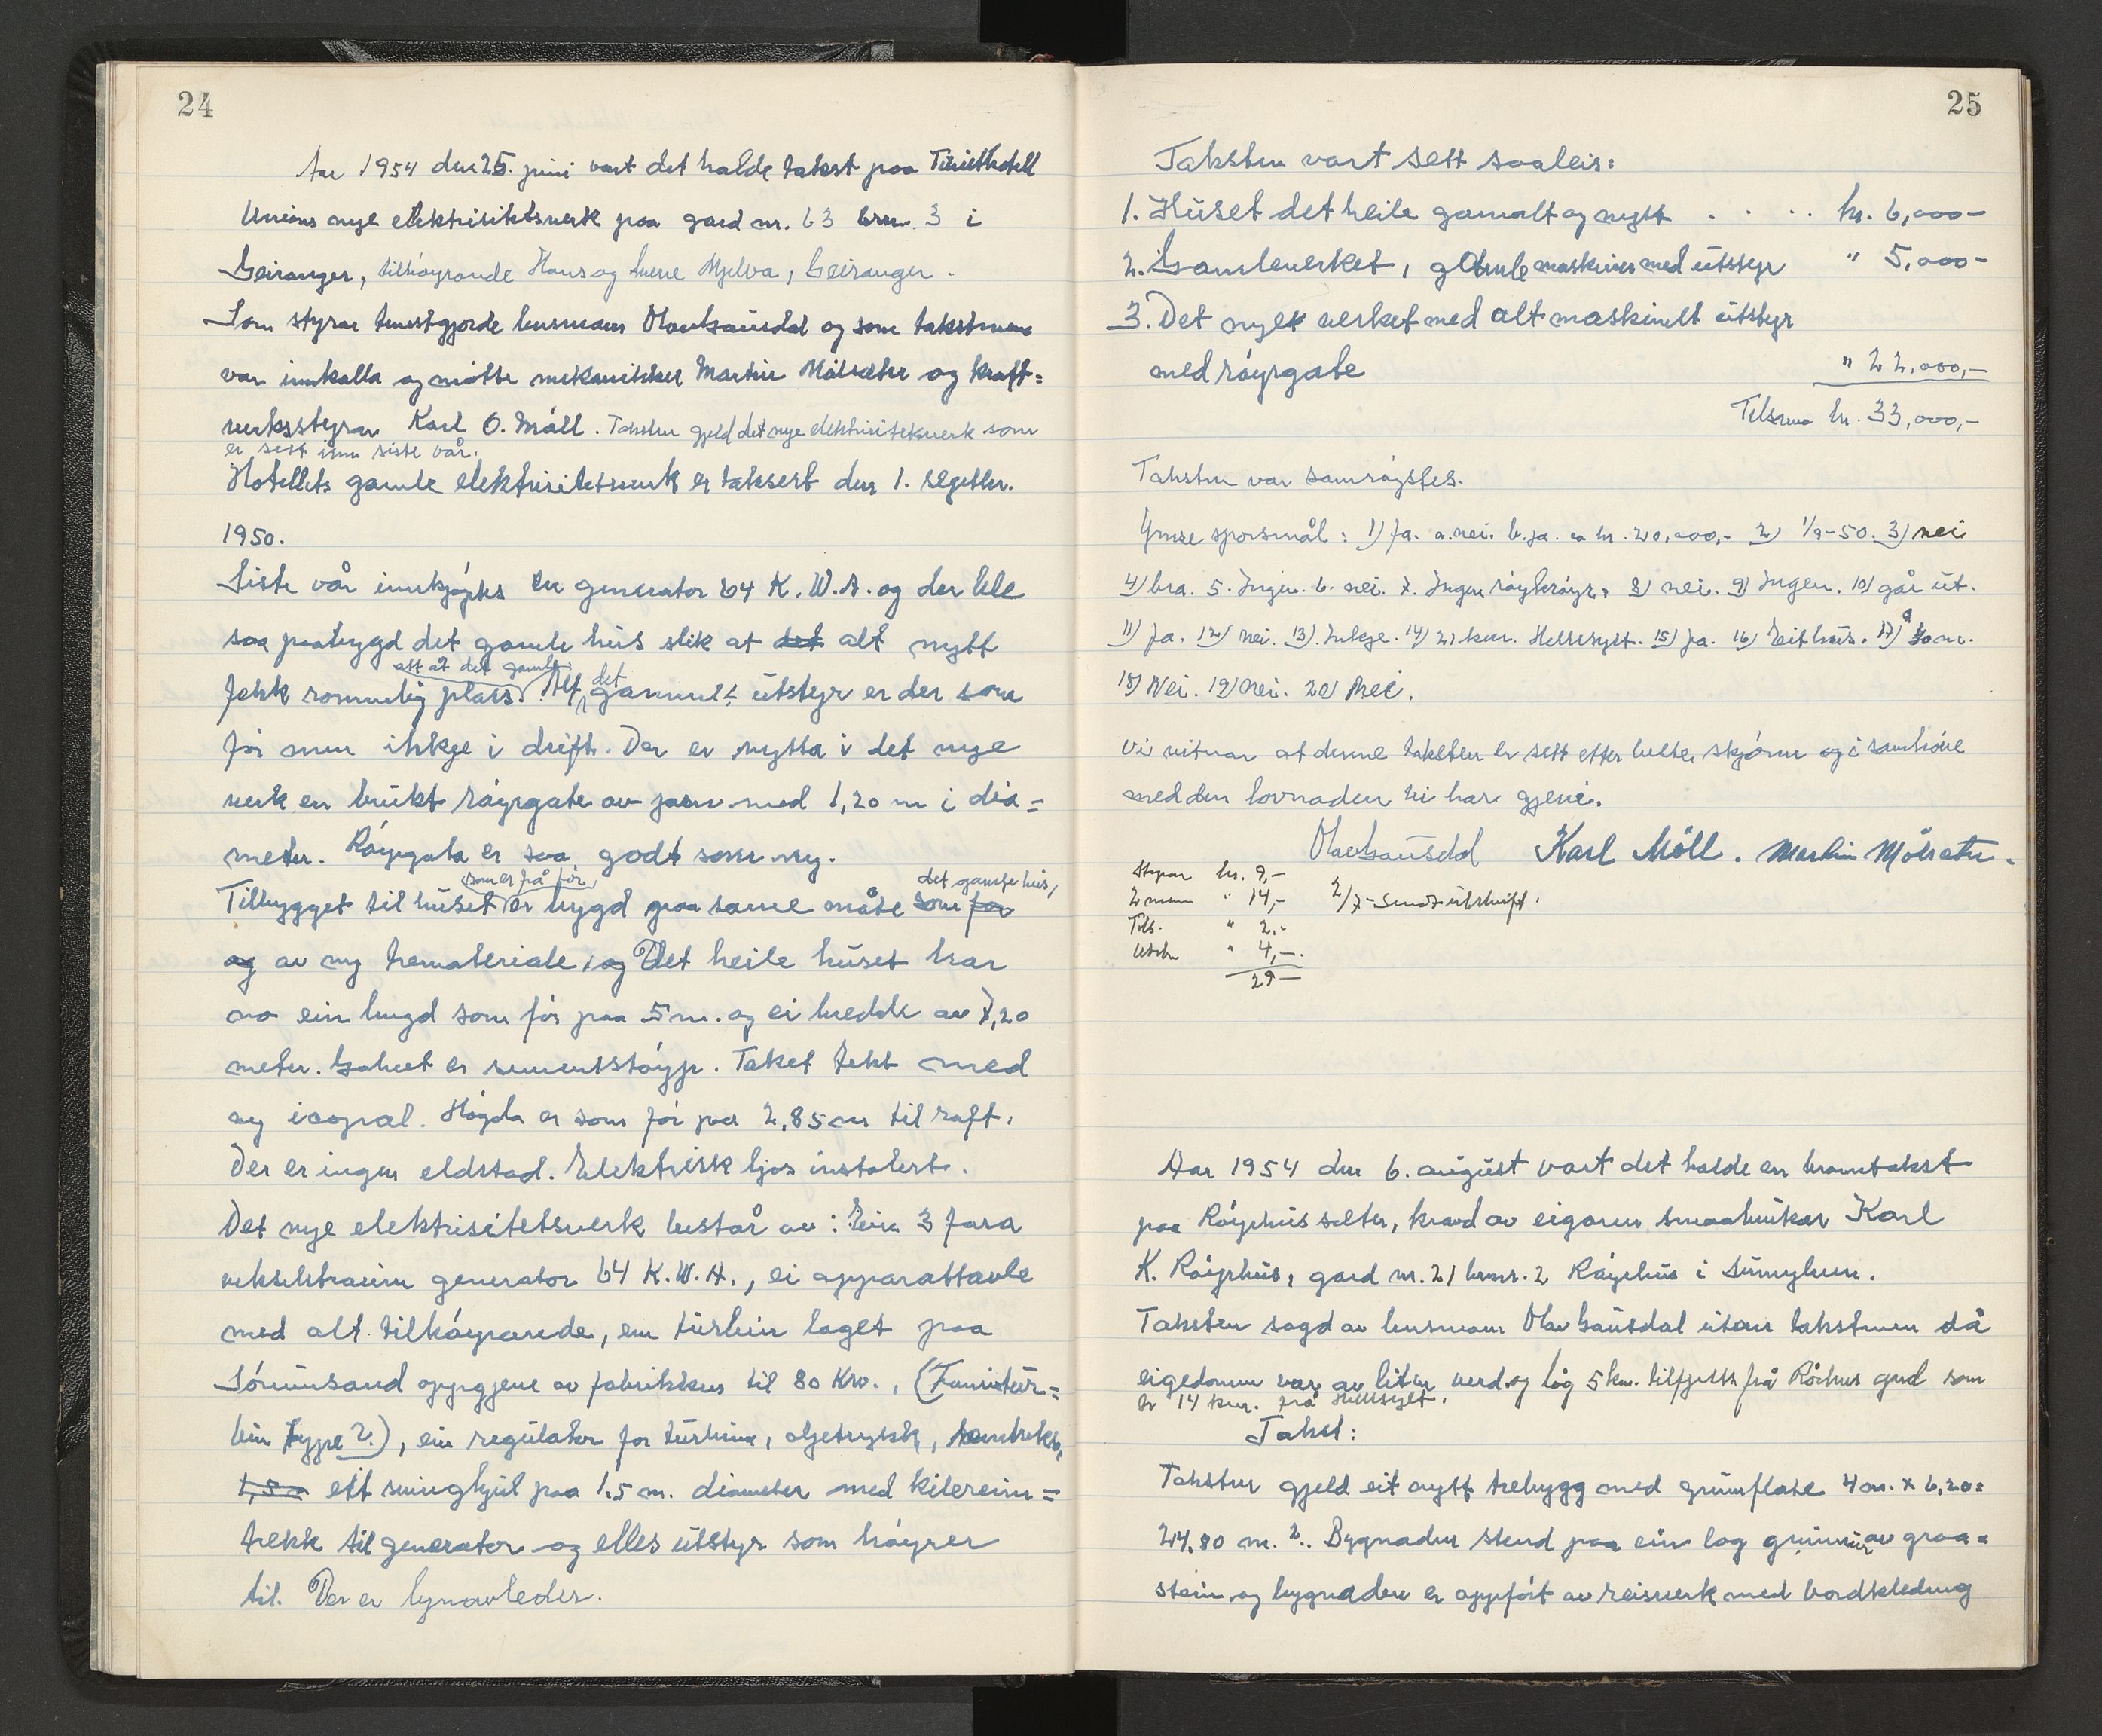 24
Aar 1954 den 25. juni vart det halde takst paa Turisthotell
Unions nye elektrisitetsverk paa gard nr. 63 brn. 3 i
Geiranger, tilhøyrande Hans og Sverre Mjelva, Geiranger.
Som styrar tenestgjorde lensmann Olav Gausdal og som takstmenn
var innkalla og møtte mekanikker Martin Målsæter og kraft=
verksstyrar Karl O. Møll. Taksten gjeld det nye elektrisitetsverk som
er sett inn siste vår.
Hotellets gamle elektrisitetsverk er taksert den 1. septbr.
1950.
Siste vår innkjøptes en generator 64 K.W.A. og der ble
saa paabygd det gamle hus slik at det alt nytt
att åt det gamle
fekk rommelig plass. Alt det gamle utstyr er der som
før men ikkje i drift. Der er nytta i det nye
verk en brukt røyrgate av jarn med 1,20 m i dia=
meter. Røyrgata er saa godt som ny.
som er på før, det gamle hus,
Tilbygget til huset er bygd paa same måte som før
og av ny tremateriale, og Det heile huset har
no ein lengd som før paa 5 m. og ei bredde av 7,20
meter. Golvet er sementstøyp. Taket tekt med
ny icopal. Høgda er som før paa 2,85 m til raft.
Der er ingen eldstad. Elektrisk ljos instalert.
Det nye elektrisitetsverk består av: Ein 3 fasa
vekselstraum generator 64 K.W.A., ei apparattavle
med alt tilhøyrande, em turbin laget paa
Sørumsand oppgjeve av fabrikken til 80 Kw., (Francistur=
bin type 2.), ein regulator for turbin, oljetrykk,
1,5 m ett svinghjul paa 1.5 m. diameter med kilereim=
trekk til generator og elles utstyr som høyrer
til. Der er lynavleder.
25
Taksten vart sett saaleis:
1. Huset det heile gamalt og nytt . . . . kr. 6,000-
2. Gamleverket, gamle maskiner med utstyr " 5,000-
3. Det nye verket med alt maskinelt utstyr
med røyrgate " 22.000,-
Tilsama kr. 33,000,-
Taksten var samrøystes.
Ymse spørsmål: 1) Ja. a. nei. b. ja. ca kr. 20.000,- 2) 1/9-50. 3) nei
4) bra. 5. Ingen. 6. nei. 7. Ingen røykrøyr. 8) nei. 9) Ingen. 10) går ut.
11) Ja. 12) Nei. 13) Inkje. 14) 21 km. Hellesylt. 15) Ja. 16) Eit hus. 17)
18) Nei. 19) nei. 20) Nei.
Vi vitnar at denne taksten er sett etter beste skjønn og i samhøve
med den lovnaden vi har gjeve.
Olav Gausdal Karl Möll. Martin Målsæter.
Styrar kr. 9,-
2 menn " 14,- 2/7- Sendt utskrift.
Tils. " 2.-
Utskr " 4,-.
29-
Aar 1954 den 6. august vart det halde en branntakst
paa Røyrhussæter, kravd av eigaren smaabrukar Karl
K. Røyrhus, gard nr. 21 brnr. 2 Røyrhus i Sunnylven.
Taksten sagd av lensmann Olav Gausdal utan takstmenn då
eigedomen var av liten verd og låg 5 km. tilfjells frå Rørhus gard som
er 14 km. frå Hellesylt.
Takst:
Taksten gjeld eit nytt trebygg med grunnflate 4 m. x 6,20=
24.80 m.2.. Bygnaden stend paa ein lag grunnmur av graa=
stein og bygnaden er oppført av reisverk med bordkledning